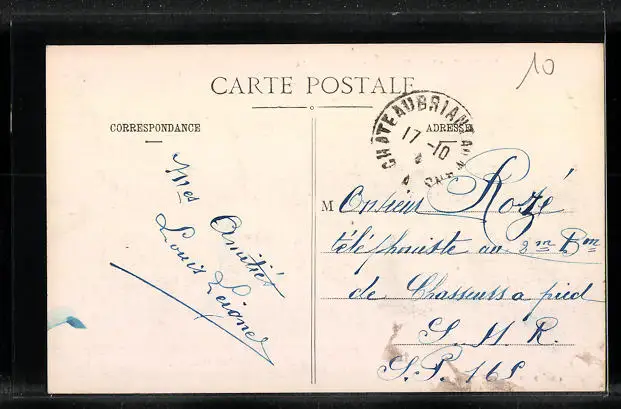 10
CARTE POSTALE
CORRESPONDANCE
ADRESSE
CHATEAUBRIANT
17-10
Mes Amitiés
Louis
Monsieur Rozé
téléphoniste au 2m Bm
de Chasseurs a pied
S. M. R.
S. P. 168